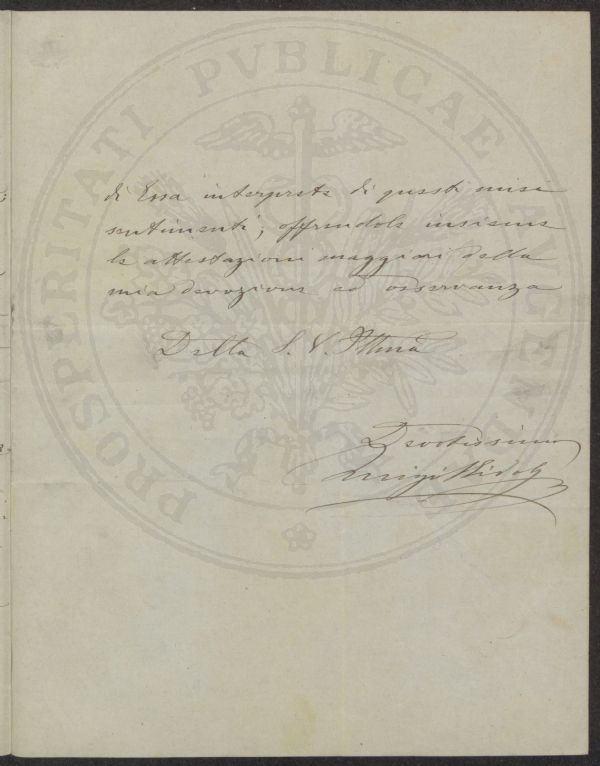 PROSPERITATI PVBLICAE AVGENDAE
di Essa interprete di questi miei
sentimenti, offrendole insieme
le attestazioni maggiori della
mia devozione ed osservanza
Della S. V. Illma
Devotissimo
Luigi Ridolfi